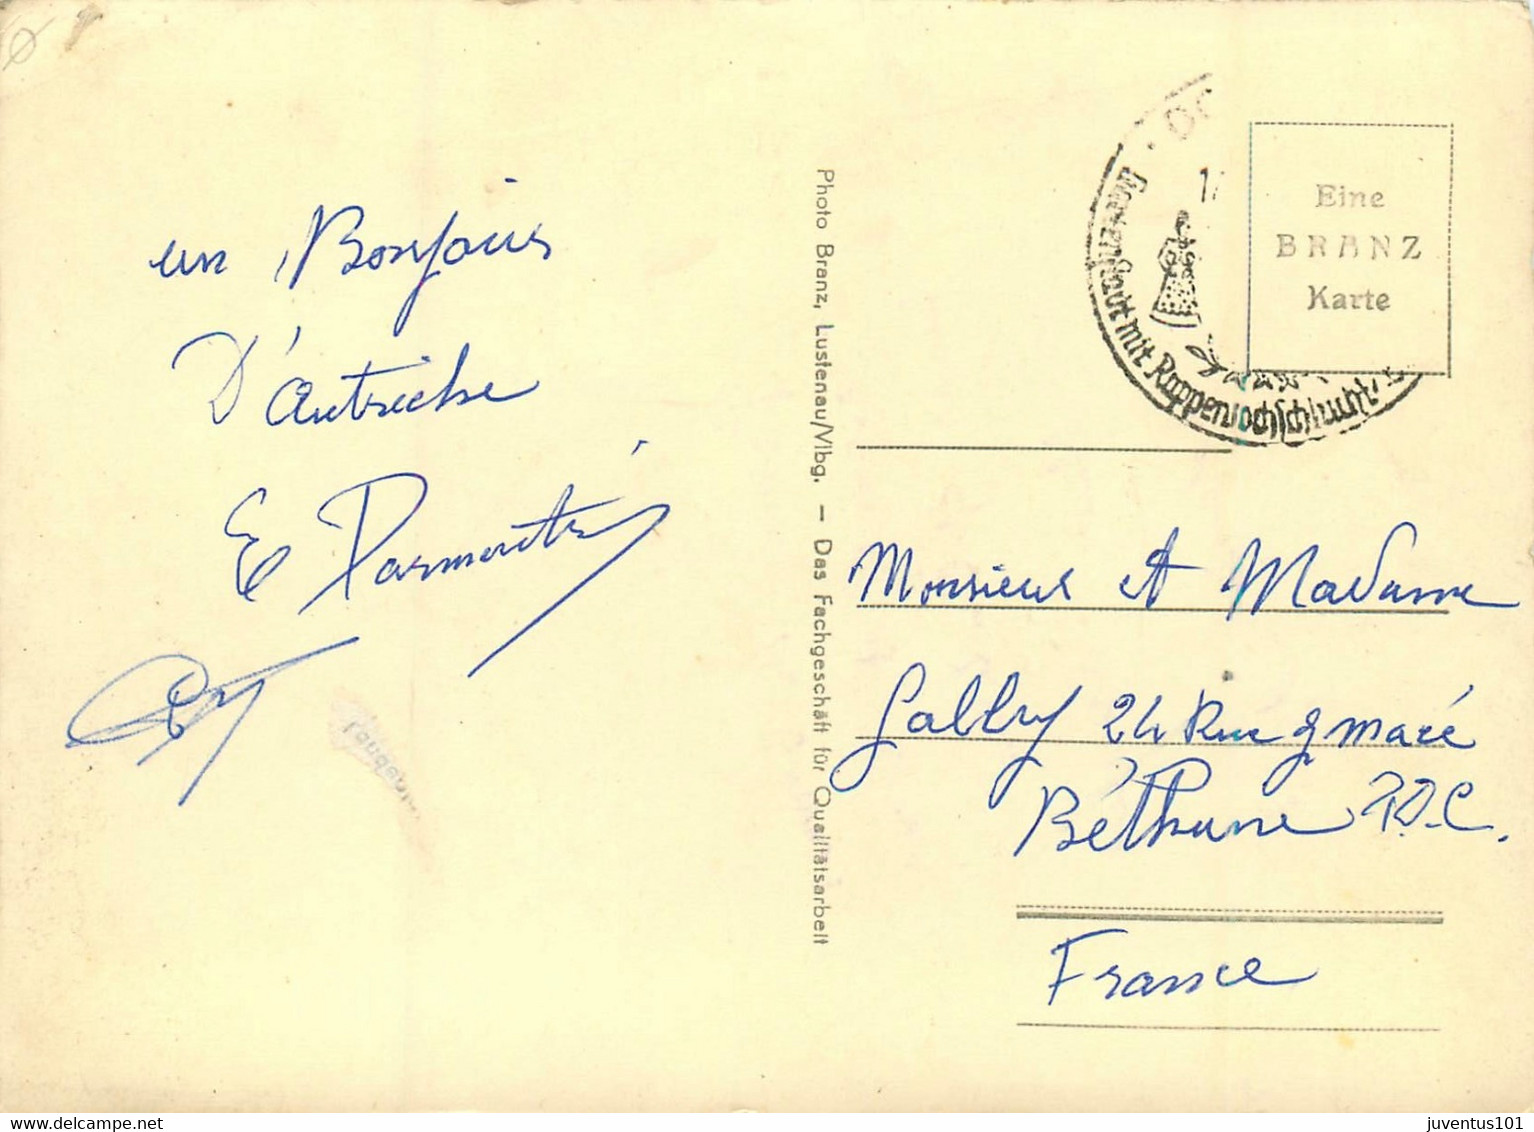 un Bonjour
D'autriche
E Parmentier
Photo Branz, Lustenau/Vlbg. — Das Fachgeschäft für Qualitätsarbeit
mit Rappenlochschlucht
Eine
BRANZ
Karte
Monsieur et Madame
Gally 24 Rue g macé
Béthune P.D.C.
France
juventus101